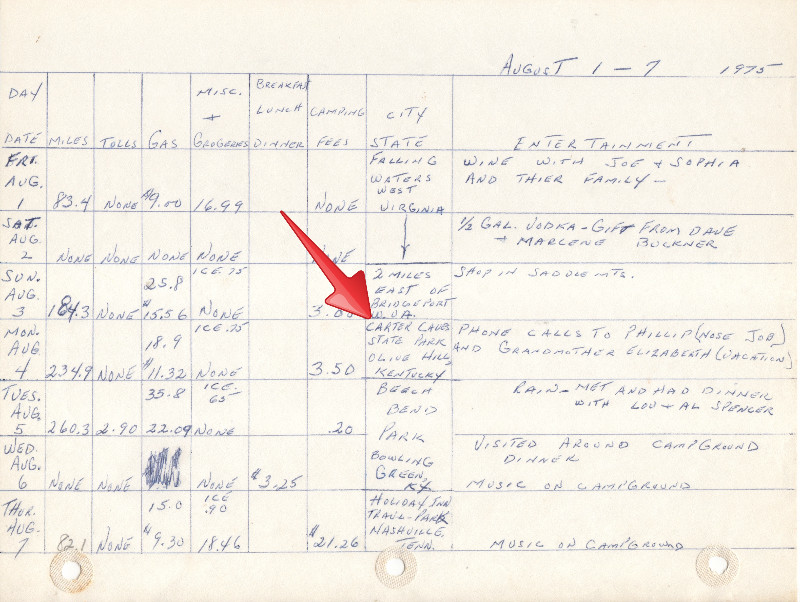 AUGUST 1 - 7 1975
DAY
DATE MILES TOLLS GAS MISC. + GROCERIES BREAKFAST LUNCH DINNER CAMPING FEES CITY STATE ENTERTAINMENT
FRI.
AUG.
1 83.4 NONE $9.00 16.99 NONE
FALLING
WATERS
WEST
VIRGINIA
WINE WITH JOE + SOPHIA
AND THIER FAMILY -
SAT.
AUG.
2 NONE NONE NONE NONE
1/2 GAL. VODKA - GIFT FROM DAVE
+ MARLENE BUCKNER
SUN.
AUG.
3 184.3 NONE 25.8 $15.56 ICE .75 NONE
2 MILES
EAST OF
BRIDGEPORT
W. VA.
SHOP IN SADDLE MTS.
MON.
AUG
4 234.9 NONE 18.9 $11.32 ICE .75 NONE 3.50
CARTER CAVES
STATE PARK
OLIVE HILL,
KENTUCKY
PHONE CALLS TO PHILLIP (NOSE JOB)
AND GRANDMOTHER ELIZABETH (VACATION)
TUES.
AUG.
5 260.3 2.90 35.8 22.09 ICE .65 NONE .20
BEECH
BEND
PARK
RAIN - MET AND HAD DINNER
WITH LOU + AL SPENCER
WED.
AUG.
6 NONE NONE NONE $3.25
BOWLING
GREEN,
KY
VISITED AROUND CAMPGROUND
DINNER
MUSIC ON CAMPGROUND
THUR.
AUG.
7 82.1 NONE 15.0 $9.30 ICE .90 18.46 $21.26
HOLIDAY INN
TRAVL-PARK
NASHVILLE,
TENN.
MUSIC ON CAMPGROUND